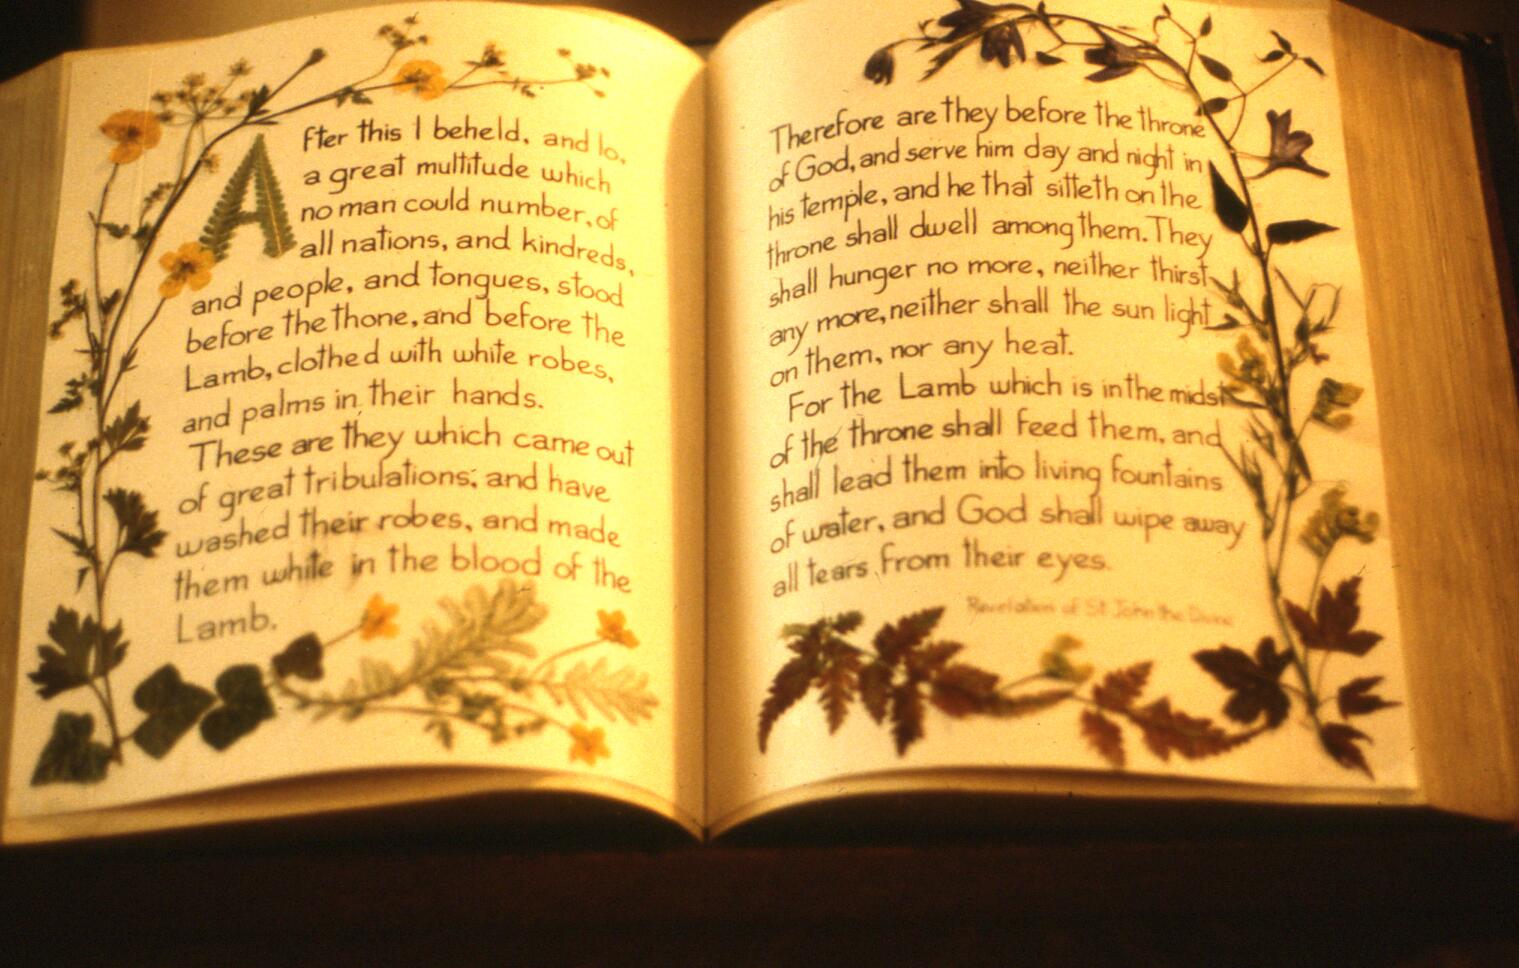 After this I beheld, and lo,
a great multitude which
no man could number, of
all nations, and kindreds,
and people, and tongues, stood
before the thone, and before the
Lamb, clothed with white robes,
and palms in their hands.
These are they which came out
of great tribulations; and have
washed their robes, and made
them white in the blood of the
Lamb.
Therefore are they before the throne
of God, and serve him day and night in
his temple, and he that sitteth on the
throne shall dwell among them. They
shall hunger no more, neither thirst
any more, neither shall the sun light
on them, nor any heat.
For the Lamb which is in the midst
of the throne shall feed them, and
shall lead them into living fountains
of water, and God shall wipe away
all tears from their eyes.
Revelation of St John the Divine